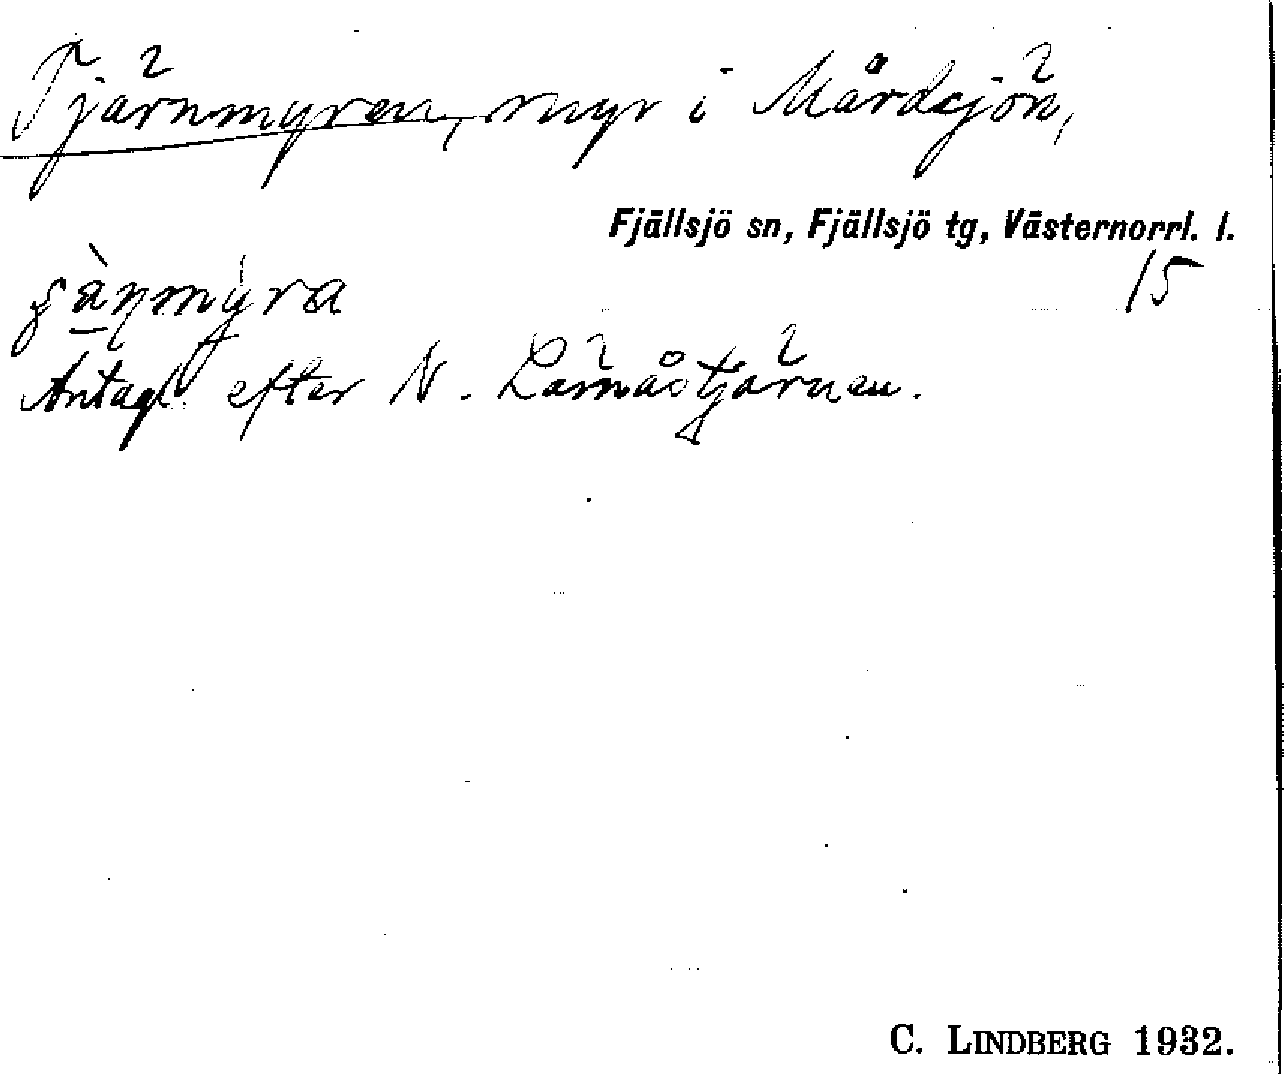 Tjärnmyren, myr i Mårdsjön,
Fjällsjö sn, Fjällsjö tg, Västernorrl. l.
15
Antagl. efter N. Lämåstjärnen.
C. LINDBERG 1932.